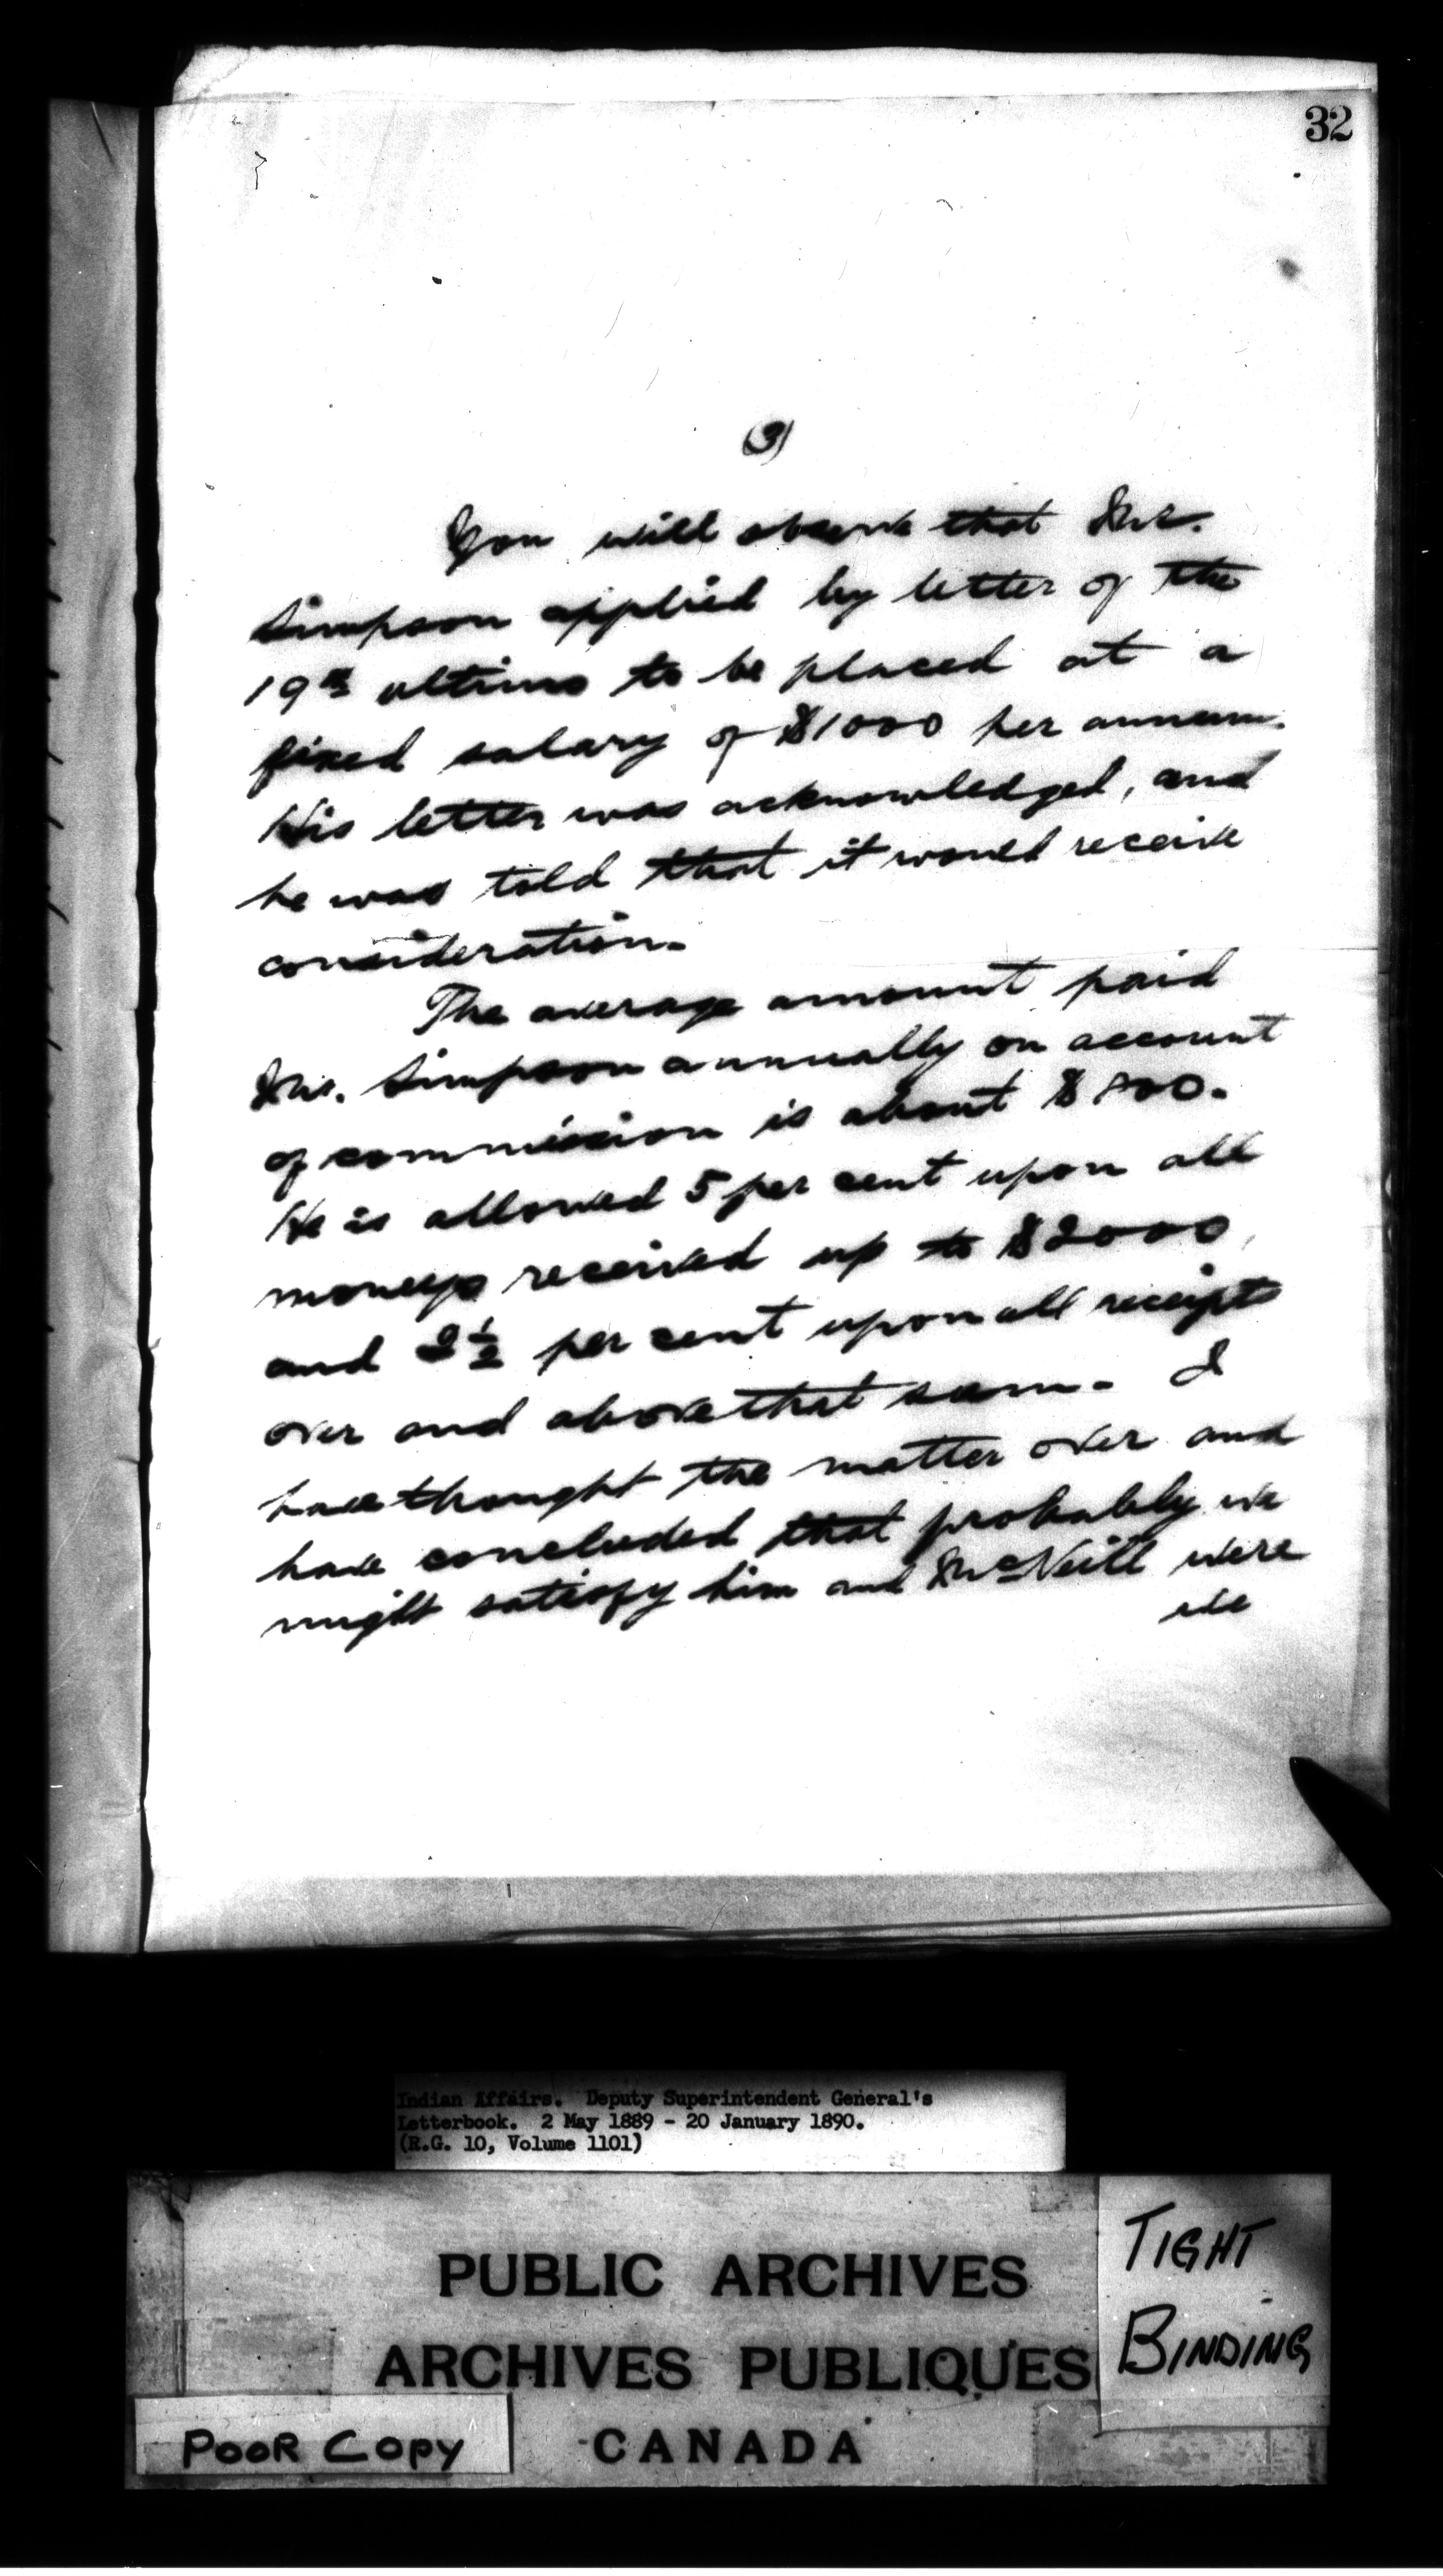 32
(3)
You will observe that Mr.
Simpson applied by letter of the
19th ultimo to be placed at a
fixed salary of $1000 per annum.
His letter was acknowledged, and
he was told that it would receive
consideration.
The average amount paid
Mr. Simpson annually on account
of commission is about $800.
He is allowed 5 per cent upon all
moneys received up to $2000,
and 2½ per cent upon all receipts
over and above that sum. I
have thought the matter over and
have concluded that probably we
might satisfy him and McNeill were
we
Indian Affairs. Deputy Superintendent General's
Letterbook. 2 May 1889 - 20 January 1890.
(R.G. 10, Volume 1101)
PUBLIC ARCHIVES
ARCHIVES PUBLIQUES
CANADA
TIGHT
BINDING
POOR COPY